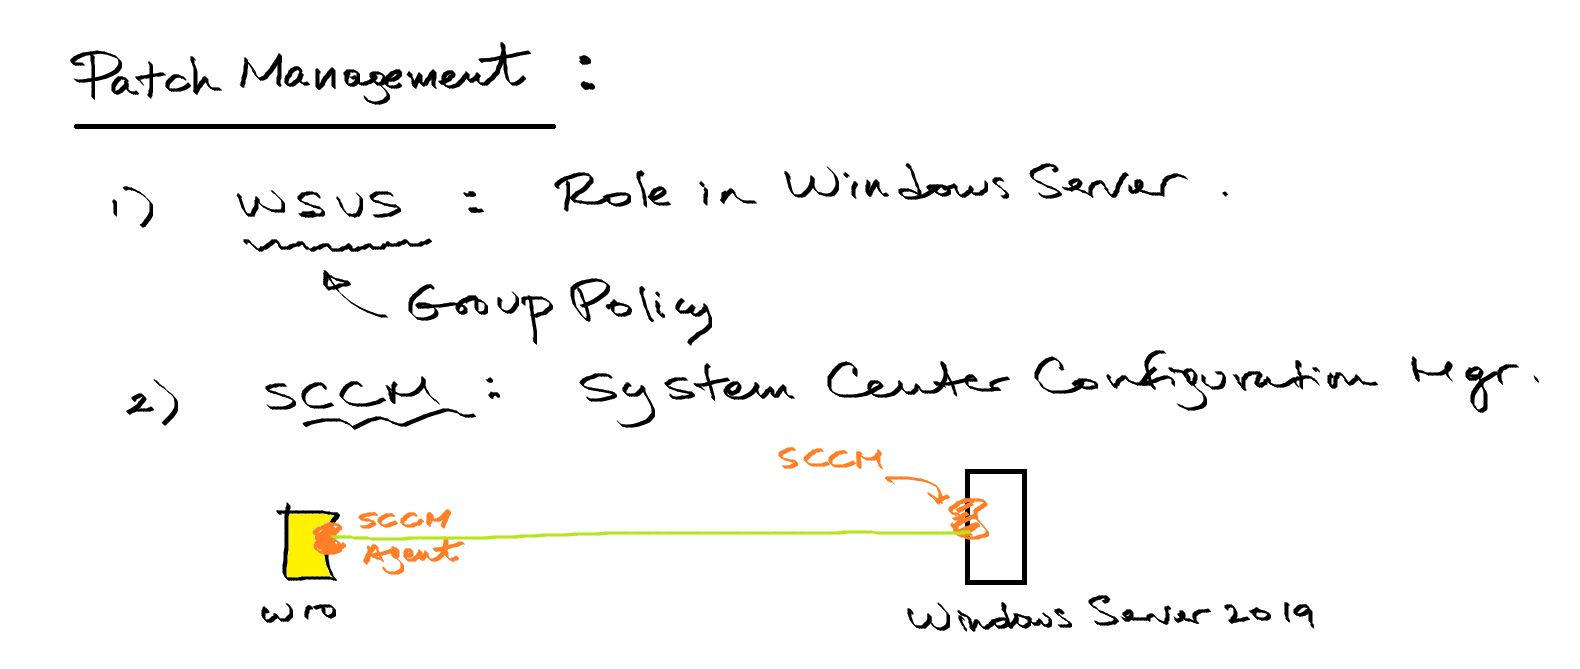 Patch Management :
1) WSUS : Role in Windows Server .
Group Policy
2) SCCM : System Center Configuration Mgr.
SCCM
SCCM
Agent
W10
Windows Server 2019